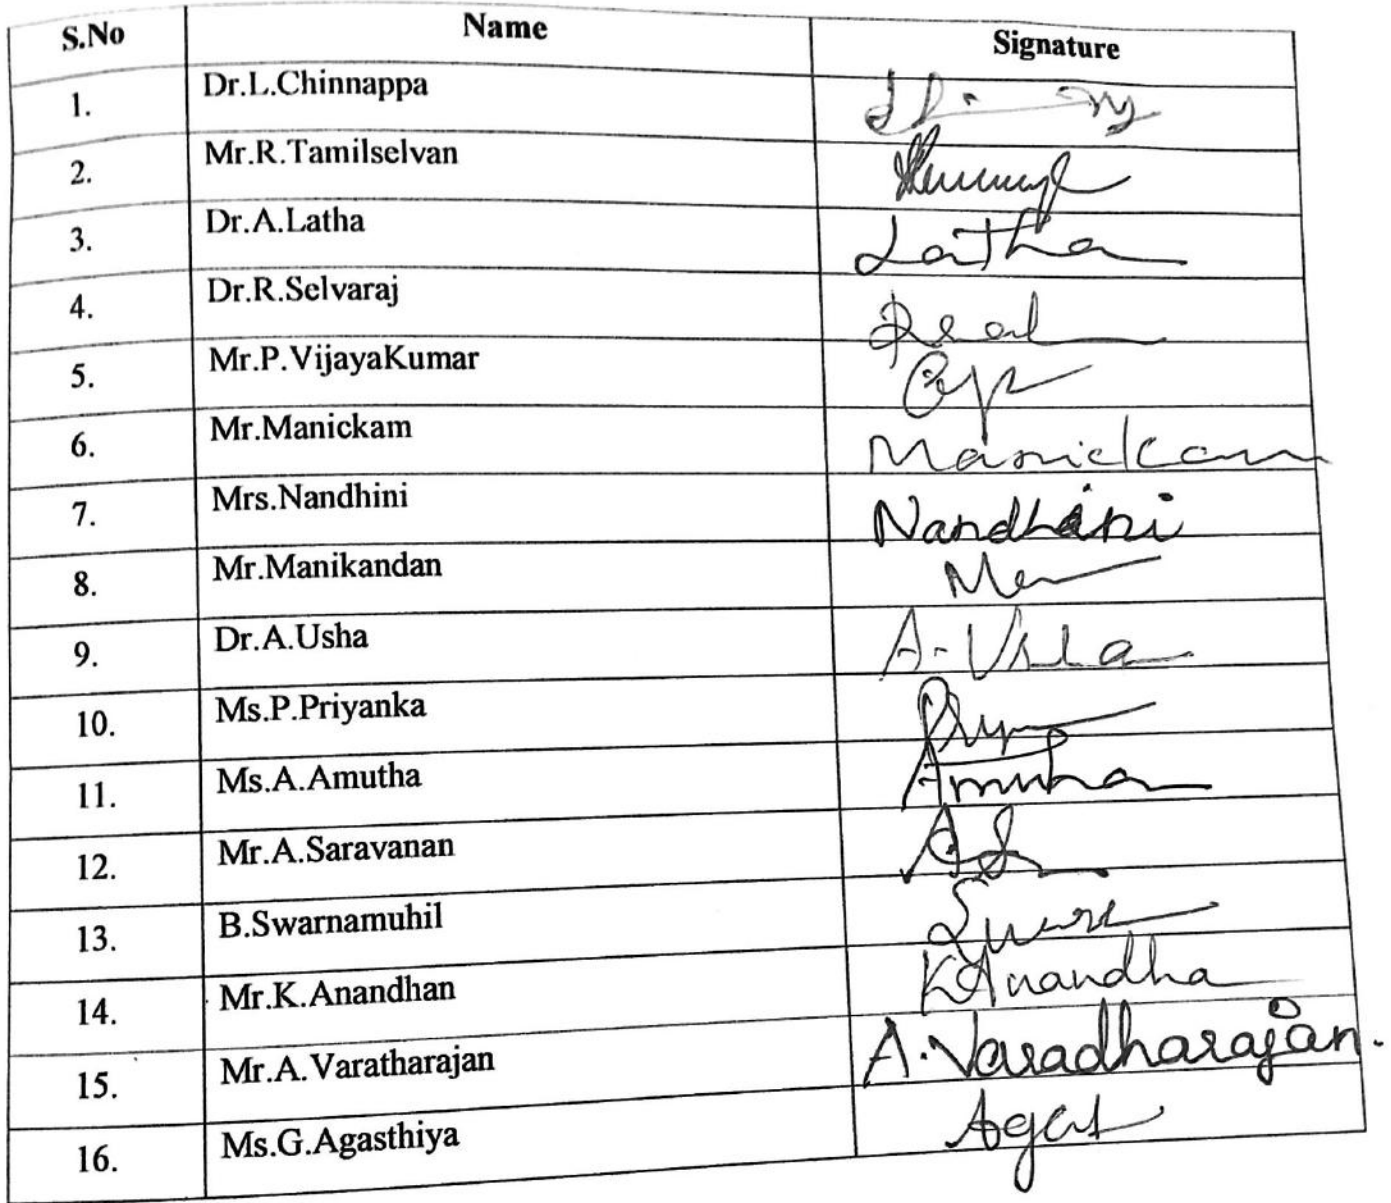 S.No Name Signature
1. Dr.L.Chinnappa
2. Mr.R.Tamilselvan
3. Dr.A.Latha Latha
4. Dr.R.Selvaraj
5. Mr.P.VijayaKumar
6. Mr.Manickam Manickam
7. Mrs.Nandhini Nandhini
8. Mr.Manikandan
9. Dr.A.Usha A-Usha
10. Ms.P.Priyanka
11. Ms.A.Amutha Amutha
12. Mr.A.Saravanan
13. B.Swarnamuhil
14. Mr.K.Anandhan K Anandha
15. Mr.A.Varatharajan A.Varadharajan.
16. Ms.G.Agasthiya